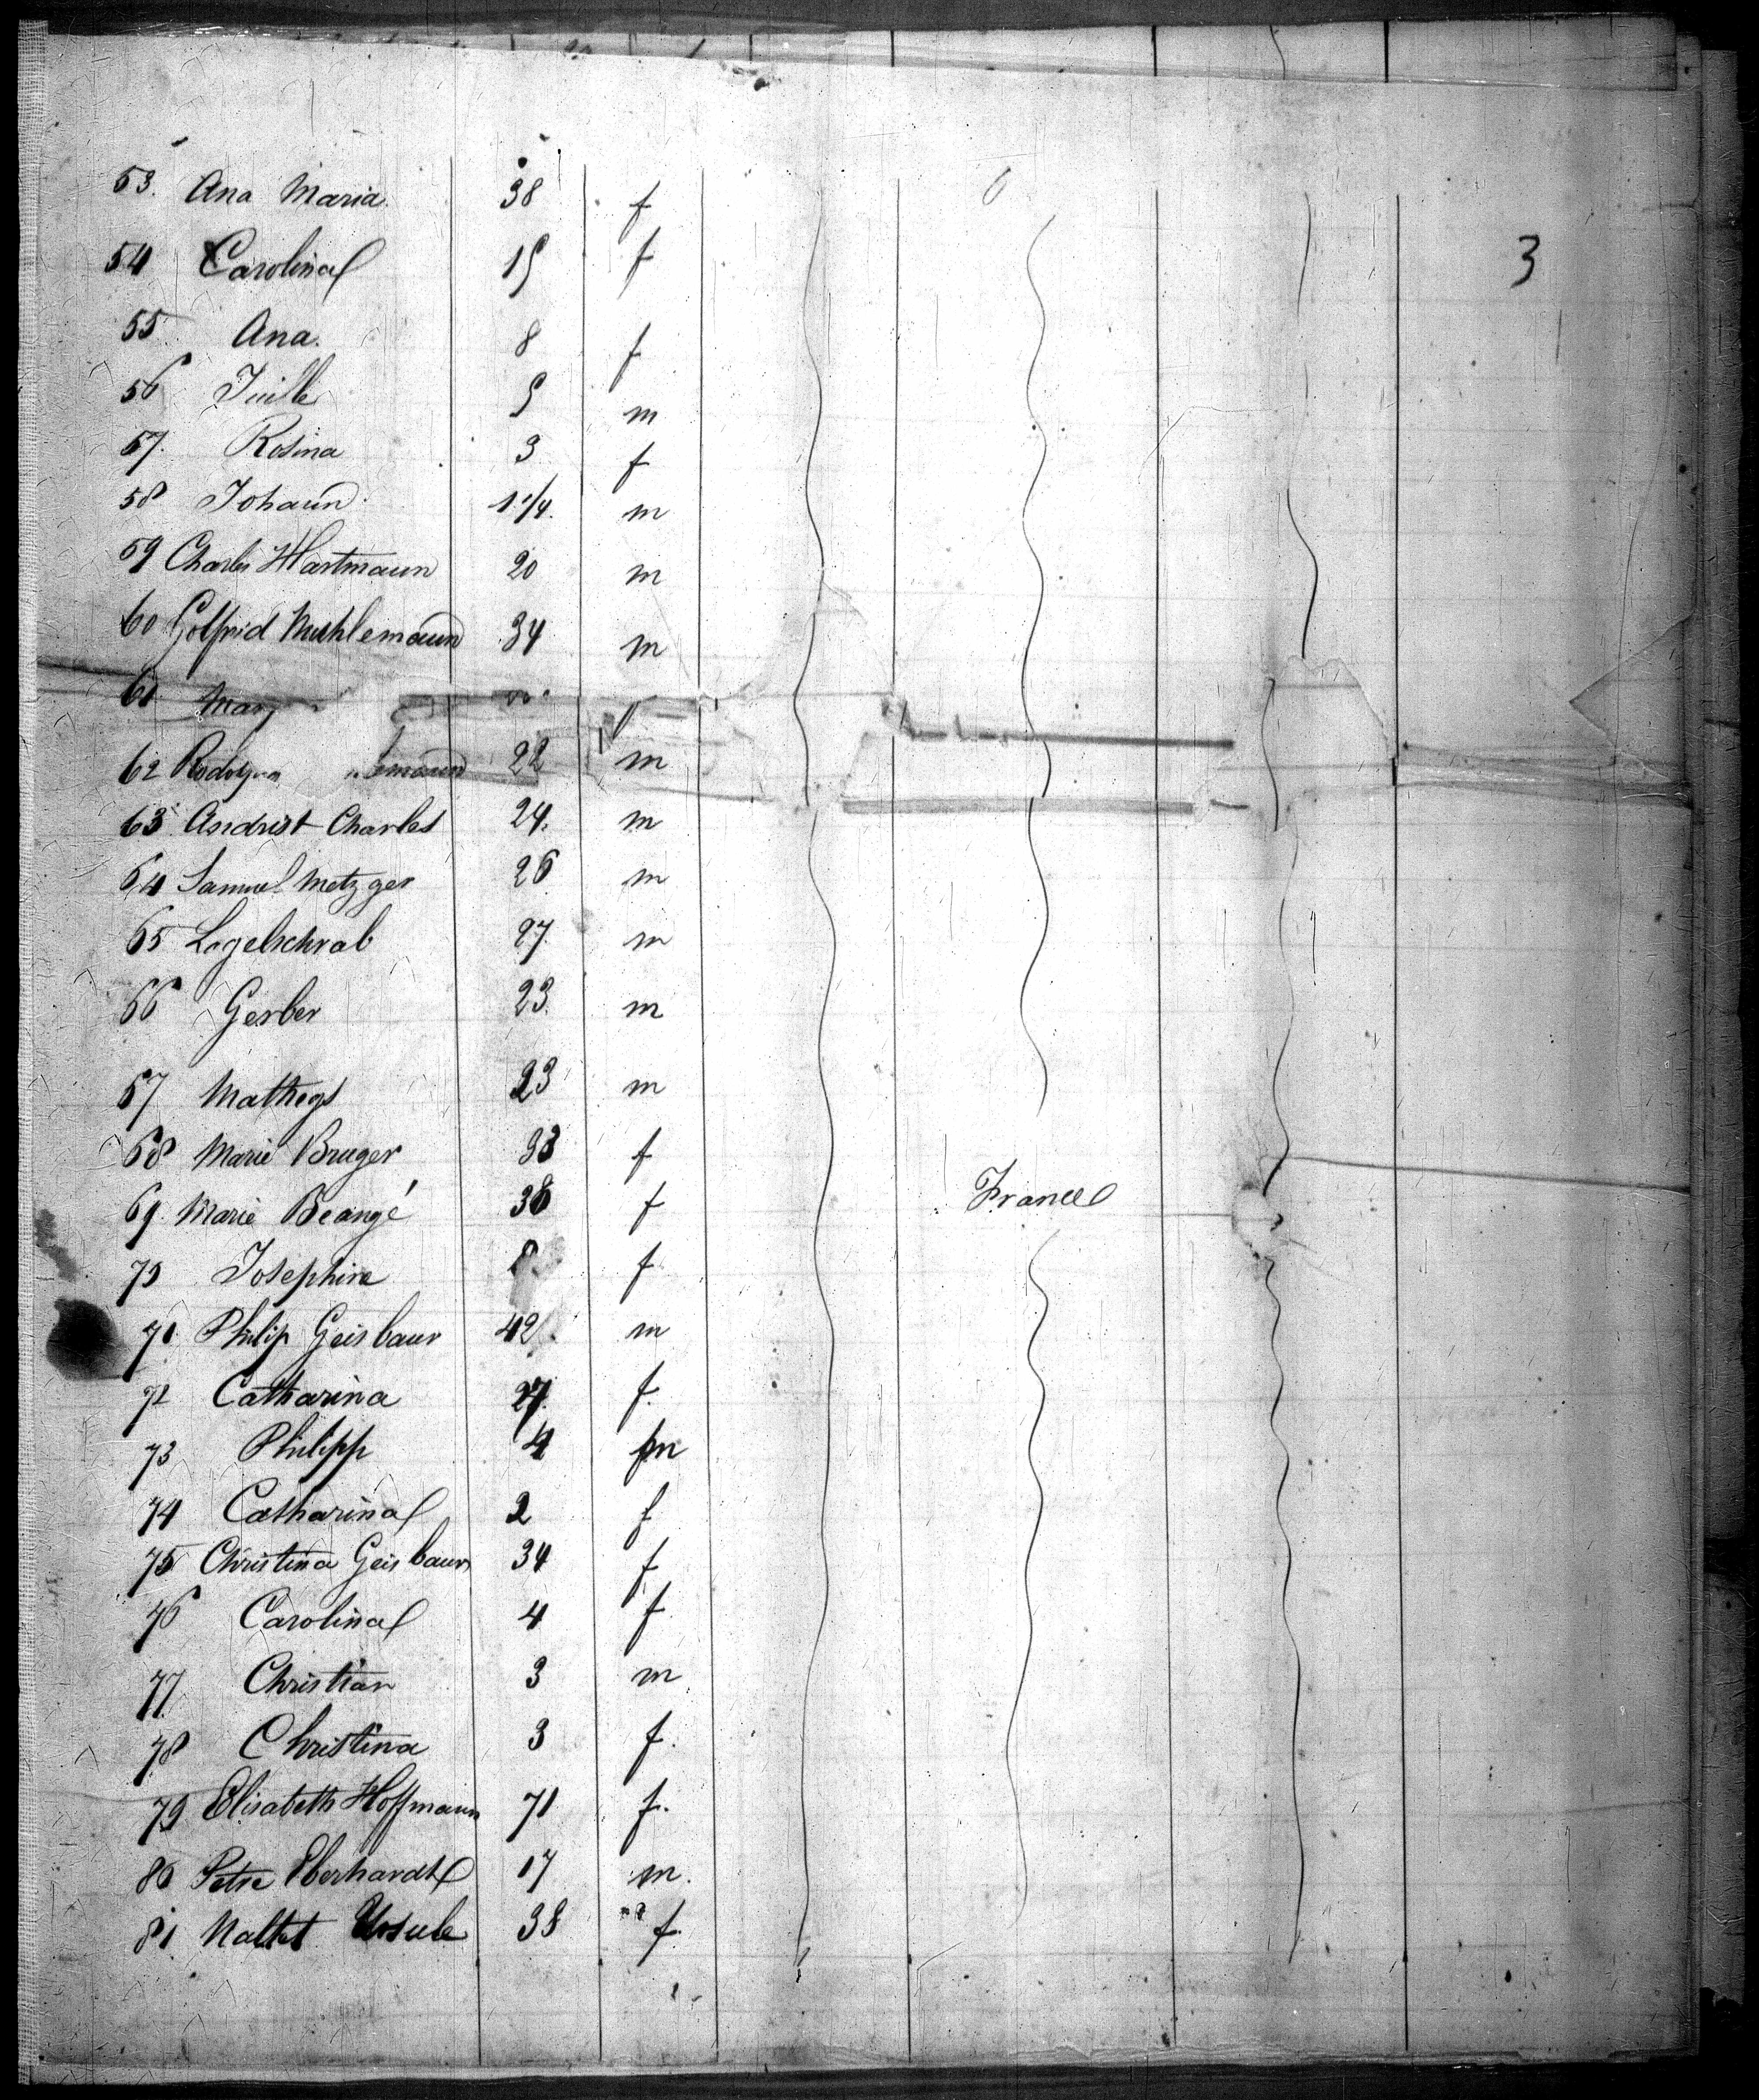 53. Ana Maria. 38 f
3
54 Carolina 15 f
55 Ana. 8 f
56 5 m
57. Rosina 3 f
58 Johann. 1 1/4. m
59 Charles Hartmann 20 m
60 Gotfrid Muhlemann 34 m
61 Mary
62 22 m
63 Andrist Charles 24. m
64 Samuel Metzger 26 m
65 27. m
66 Gerber 23. m
67 Matheys 23 m
68 Marie Bruger 33 f
69. Marie Beangé 38 f
France
70 Josephine 8 f
71. Philip Geisbaur 42. m
72 Catharina 27. f.
73 Philipp 4 m
74 Catharina 2 f
75 Christina Geisbaur 34 f
76 Carolina 4 f
77 Christian 3 m
78 Christina 3 f.
79. Elisabeth Hoffmann 71 f.
80 Petre Eberhardt 17 m.
81 Naltet Ursule 38 f.